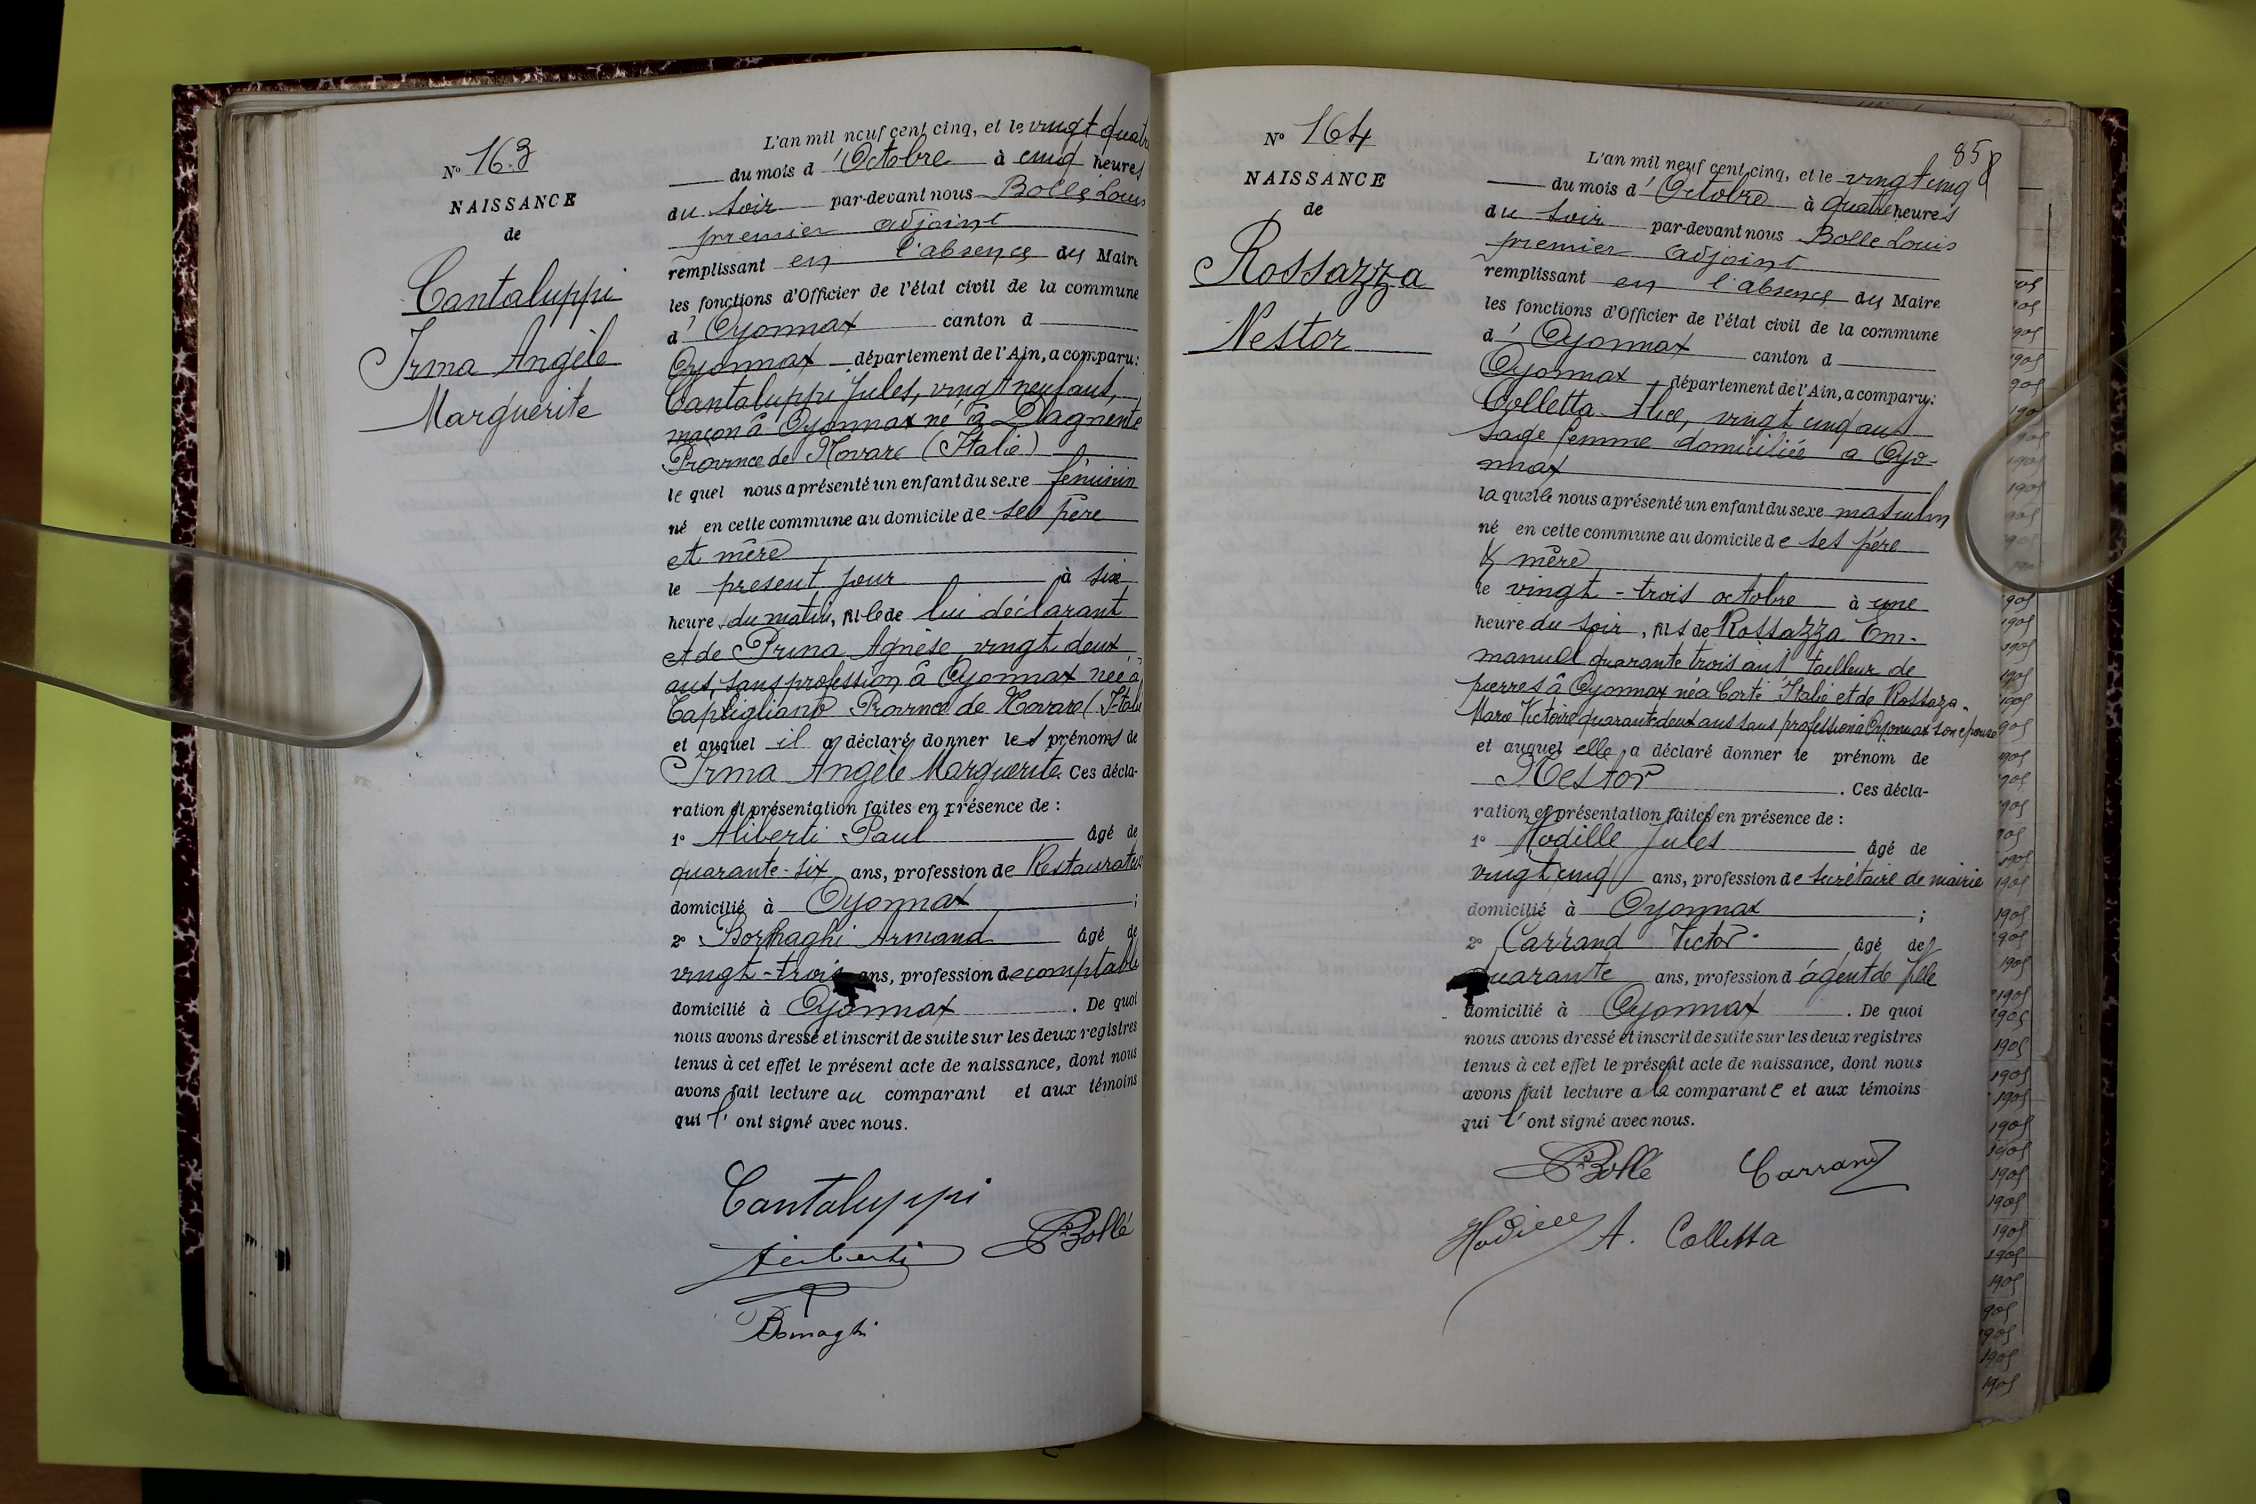 N° 163
NAISSANCE
de
Cantaluppi
Irma Angèle
Marguerite
L'an mil neuf cent cinq, et le vingt quatre
du mois d'Octobre à cinq heures
du soir par-devant nous Bollé Louis
premier adjoint
remplissant en l'absence du Maire
les fonctions d'Officier de l'état civil de la commune
d'Oyonnax canton d
Oyonnax département de l'Ain, a comparu:
Cantaluppi Jules, vingt neuf ans,
maçon à Oyonnax né à Dagnente
Province de Novare (Italie)
le quel nous a présenté un enfant du sexe féminin
né en cette commune au domicile de ses père
et mère
le présent jour à six
heures du matin, fille de lui déclarant
et de Prina Agnèse, vingt deux
ans, sans profession à Oyonnax née à
Province de Novare (Italie
et auquel il a déclaré donner les prénoms de
Irma Angèle Marguerite. Ces décla-
ration et présentation faites en présence de :
1° Aliberti Paul âgé de
quarante-six ans, profession de Restaurateur
domicilié à Oyonnax ;
2° Bornaghi Armand âgé de
vingt-trois ans, profession de comptable
domicilié à Oyonnax . De quoi
nous avons dressé et inscrit de suite sur les deux registres
tenus à cet effet le présent acte de naissance, dont nous
avons fait lecture au comparant et aux témoins
qui l'ont signé avec nous.
Cantaluppi
Aliberti
Bollé
Bornaghi
85
N° 164
NAISSANCE
de
Rossazza
Nestor
L'an mil neuf cent cinq, et le vingt cinq
du mois d'Octobre à quatre heures
du soir par-devant nous Bolle Louis
premier adjoint
remplissant en l'absence du Maire
les fonctions d'Officier de l'état civil de la commune
d'Oyonnax canton d
Oyonnax département de l'Ain, a comparu:
Colletta Alice, vingt cinq ans
sage femme domiciliée à Oyo-
nnax
la quelle nous a présenté un enfant du sexe masculin
né en cette commune au domicile de ses père
& mère
le vingt-trois octobre à une
heure du soir, fils de Rossazza Em-
manuel quarante trois ans tailleur de
pierres à Oyonnax né à Corté Italie et de Rossaza
Marie Victoire quarante deux ans sans profession à Oyonnax son épouse
et auquel elle a déclaré donner le prénom de
Nestor . Ces décla-
ration et présentation faites en présence de :
1° Hodille Jules âgé de
vingt cinq ans, profession de secrétaire de mairie
domicilié à Oyonnax ;
2° Carrand Victor âgé de
quarante ans, profession d'agent de Ville
domicilié à Oyonnax . De quoi
nous avons dressé et inscrit de suite sur les deux registres
tenus à cet effet le présent acte de naissance, dont nous
avons fait lecture a la comparante et aux témoins
qui l'ont signé avec nous.
Bollé Carrand
Hodille A. Colletta